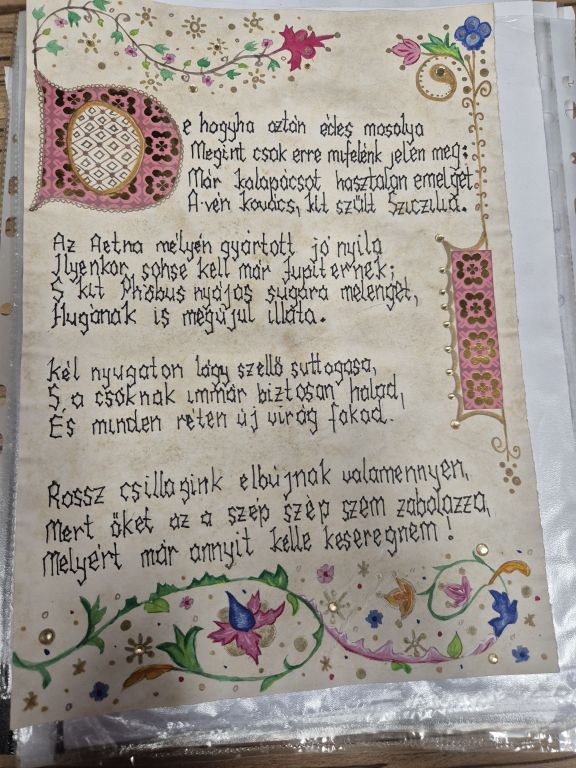 De hogyha aztán édes mosolya
Megint csak erre mifelénk jelen meg:
Már kalapácsot hasztalan emelget
A vén kovács, kit szült Sziczilia.
Az Aetna mélyén gyártott jó nyila
Ilyenkor sohse kell már Jupiternek;
S kit Phöbus nyájas sugára melenget,
Hugának is megújul illata.
kél nyugaton lágy szellő suttogása,
S a csóknak immár biztosan halad,
És minden réten új virág fakad.
Rossz csillagink elbújnak valamennyen,
Mert őket az a szép szép szem zabolázza,
Melyért már annyit kelle keseregnem!